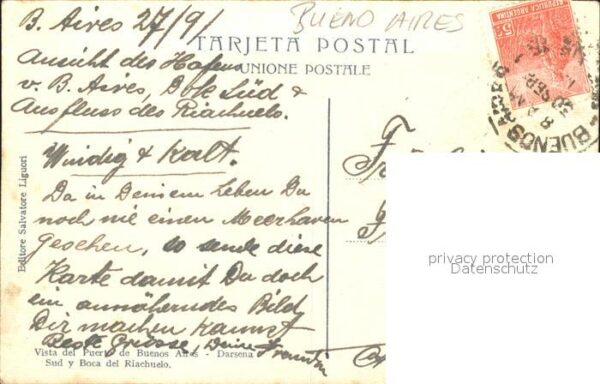 B. Aires 27/9/
BUENO AIRES
TARJETA POSTAL
UNIONE POSTALE
REPUBLICA ARGENTINA
5
BUENOS
Ansicht des Hafens
v. B. Aires, Dock Süd &
Ausfluss des Riachuelo.
Windig & Kalt.
Da in Deinem Leben Du
noch nie einen Meerhaven
gesehen, so sende diese
Karte damit Du doch
ein annäherndes Bild
Dir machen kannst
Beste Grüsse, Deine
Editore Salvatore Liguori
Vista del Puerto de Buenos Aires - Darsena
Sud y Boca del Riachuelo.
privacy protection
Datenschutz